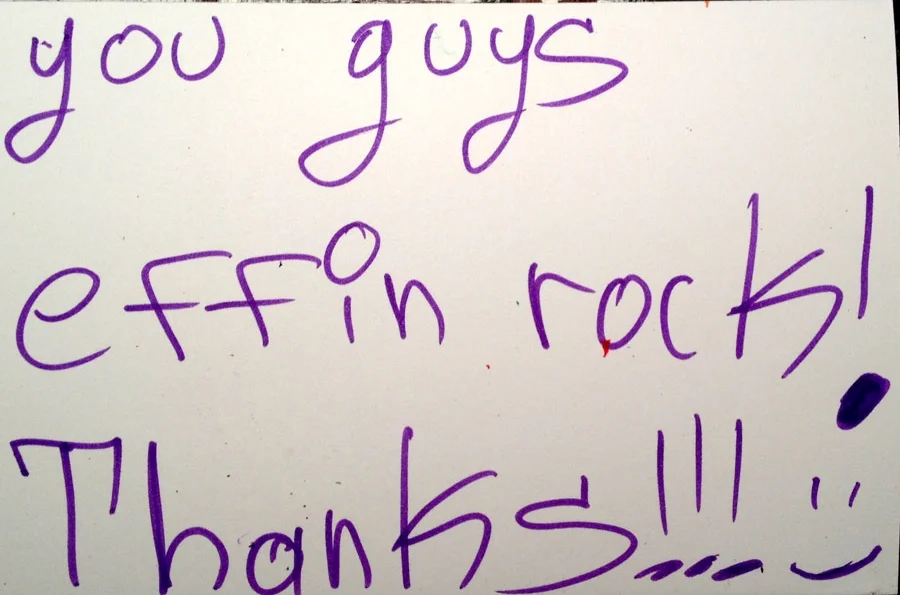 you guys
effin rock!
Thanks!!! :)